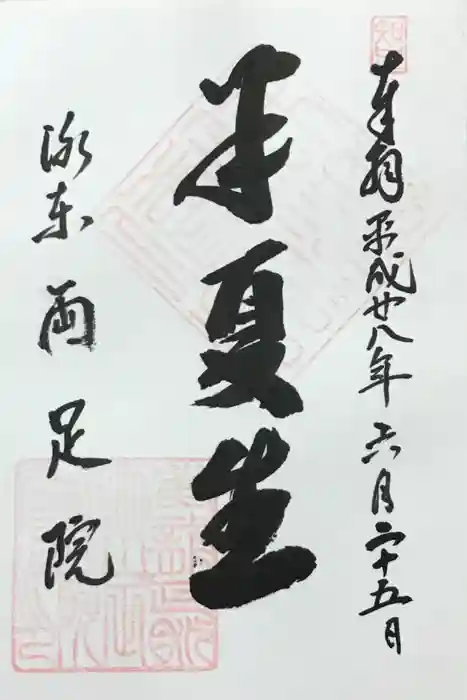 奉拝 平成廿八年 六月二十五日
半夏生
洛東 両足院